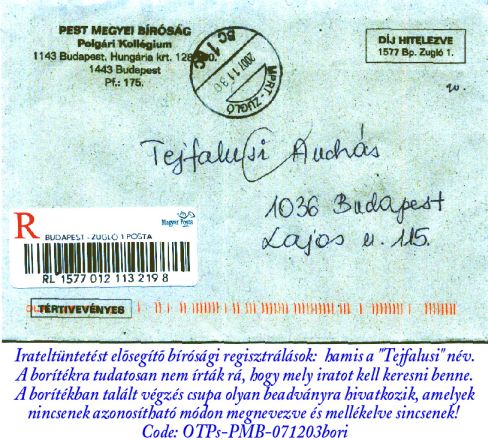 PEST MEGYEI BÍRÓSÁG
Polgári Kollégium
1143 Budapest, Hungária krt. 128-
1443 Budapest
Pf.: 175.
DÍJ HITELEZVE
1577 Bp. Zugló 1.
BC 1 BC
2007.11.30
MPRT-ZUGLÓ
20.
Tejfalusi András
1036 Budapest
Lajos u. 115.
R
Magyar Posta
BUDAPEST - ZUGLÓ 1 POSTA
RL 1577 012 113 219 8
TÉRTIVEVÉNYES
Irateltüntetést elősegítő bírósági regisztrálások: hamis a "Tejfalusi" név.
A borítékra tudatosan nem írták rá, hogy mely iratot kell keresni benne.
A borítékban talált végzés csupa olyan beadványra hivatkozik, amelyek
nincsenek azonosítható módon megnevezve és mellékelve sincsenek!
Code: OTPs-PMB-071203bori